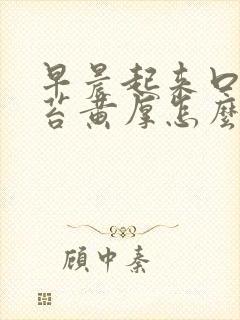 早晨起来口
苔黄厚怎麼
顾中秦